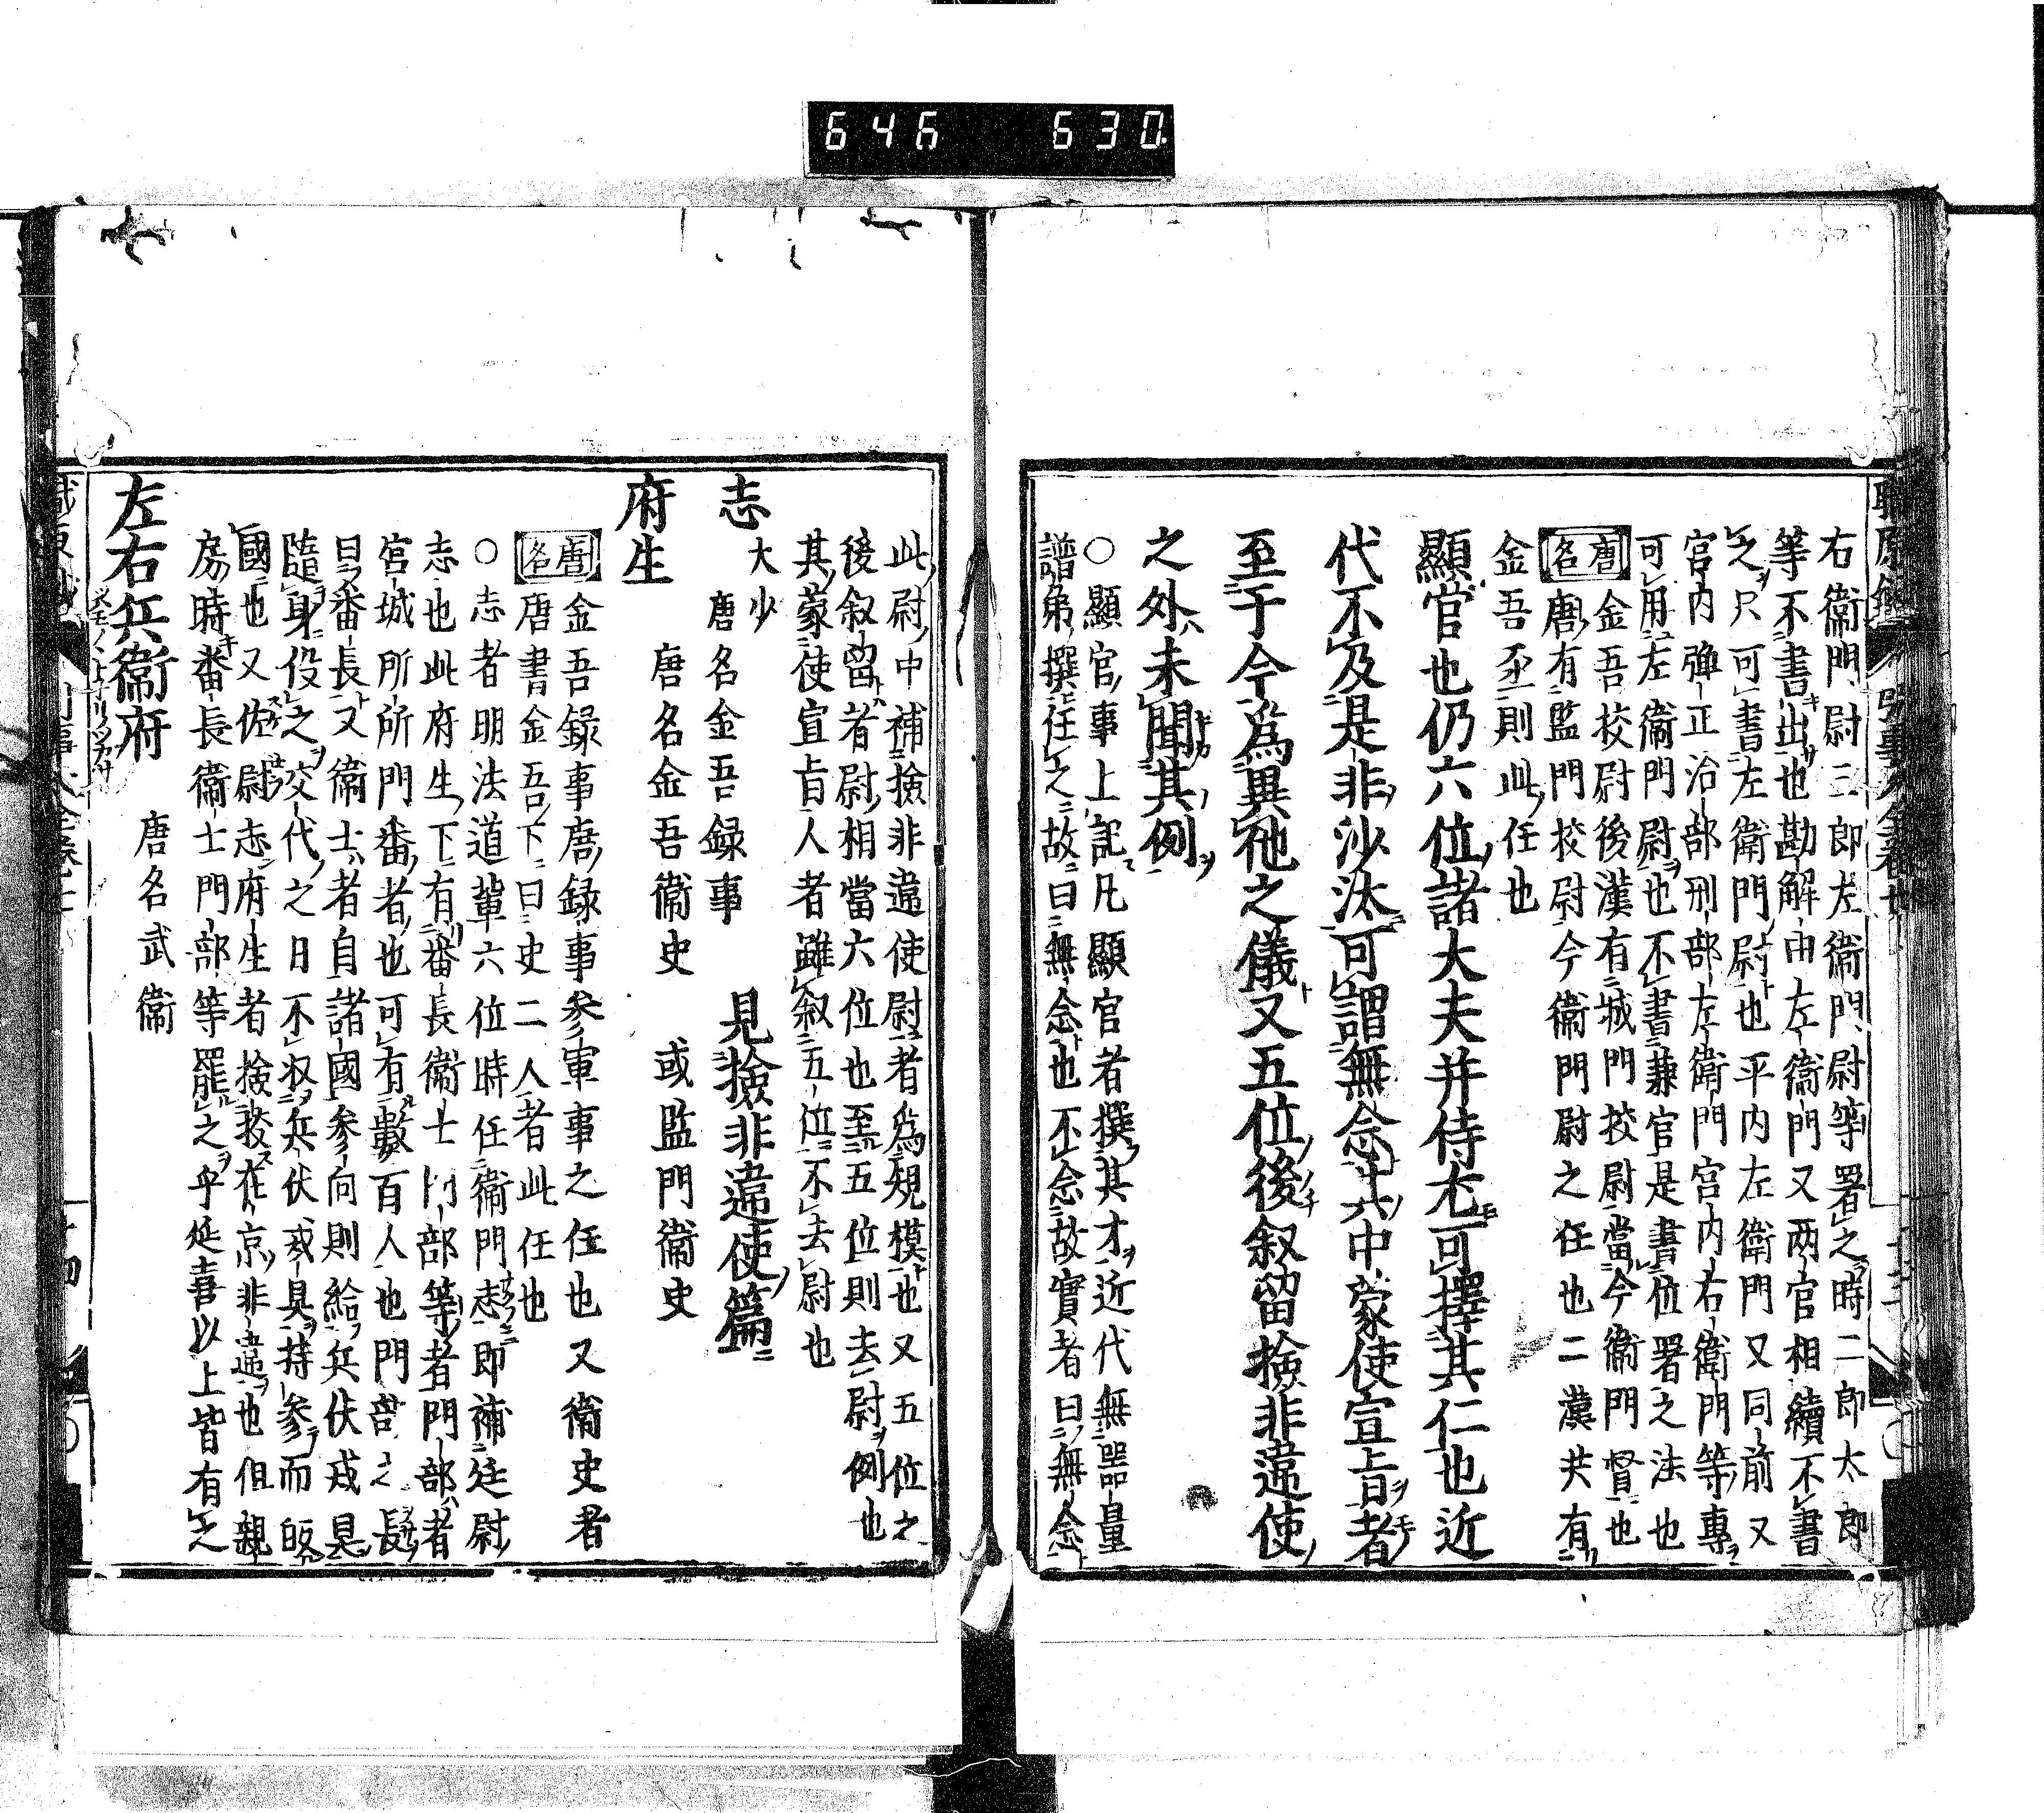 646 630
右衞門尉三郎左衞門尉等署之時二郎太郎
等不書出也勘解由左衞門又兩官相續不書
之只可書左衞門尉也平内左衞門又同前又
宮内彈正治部刑部左衞門宮内右衞門等專
可用左衞門尉也不書兼官是書位署之法也
唐名 金吾校尉後漢有城門校尉當今衞門督也
唐有監門校尉今衞門尉之任也二漢共有
金吾丞則此任也
顯官也仍六位諸大夫并侍尤可擇其仁也近
代不及是非沙汰可謂無念六中蒙使宣旨者
至于今爲異他之儀又五位後叙留撿非違使
之外未聞其例
○顯官事上記凡顯官者撰其才近代無器量
譜第撰任之故曰無念也不念故實者曰無念
此尉中補撿非違使尉者爲規模也又五位之
後叙留者尉相當六位也至五位則去尉例也
其蒙使宣旨人者雖叙五位不去尉也
志 大少 唐名金吾録事 見撿非違使篇
府生 唐名金吾衞史 或監門衞史
唐名 金吾録事唐録事参軍事之任也又衞史者
唐書金吾下曰史二人者此任也
○志者明法道輩六位時任衞門志即補廷尉
志也此府生下有番長衞士門部等者門部者
宮城所所門番者也可有數百人也門部之長
曰番長又衞士者自諸國參向則給兵伏或是
隨身役之交代之日不収兵伏或具持參而皈
國也又佐尉志府生者撿挍在京非違也但親
房時番長衞士門部等罷之乎延喜以上皆有之
左右兵衞府 唐名武衞